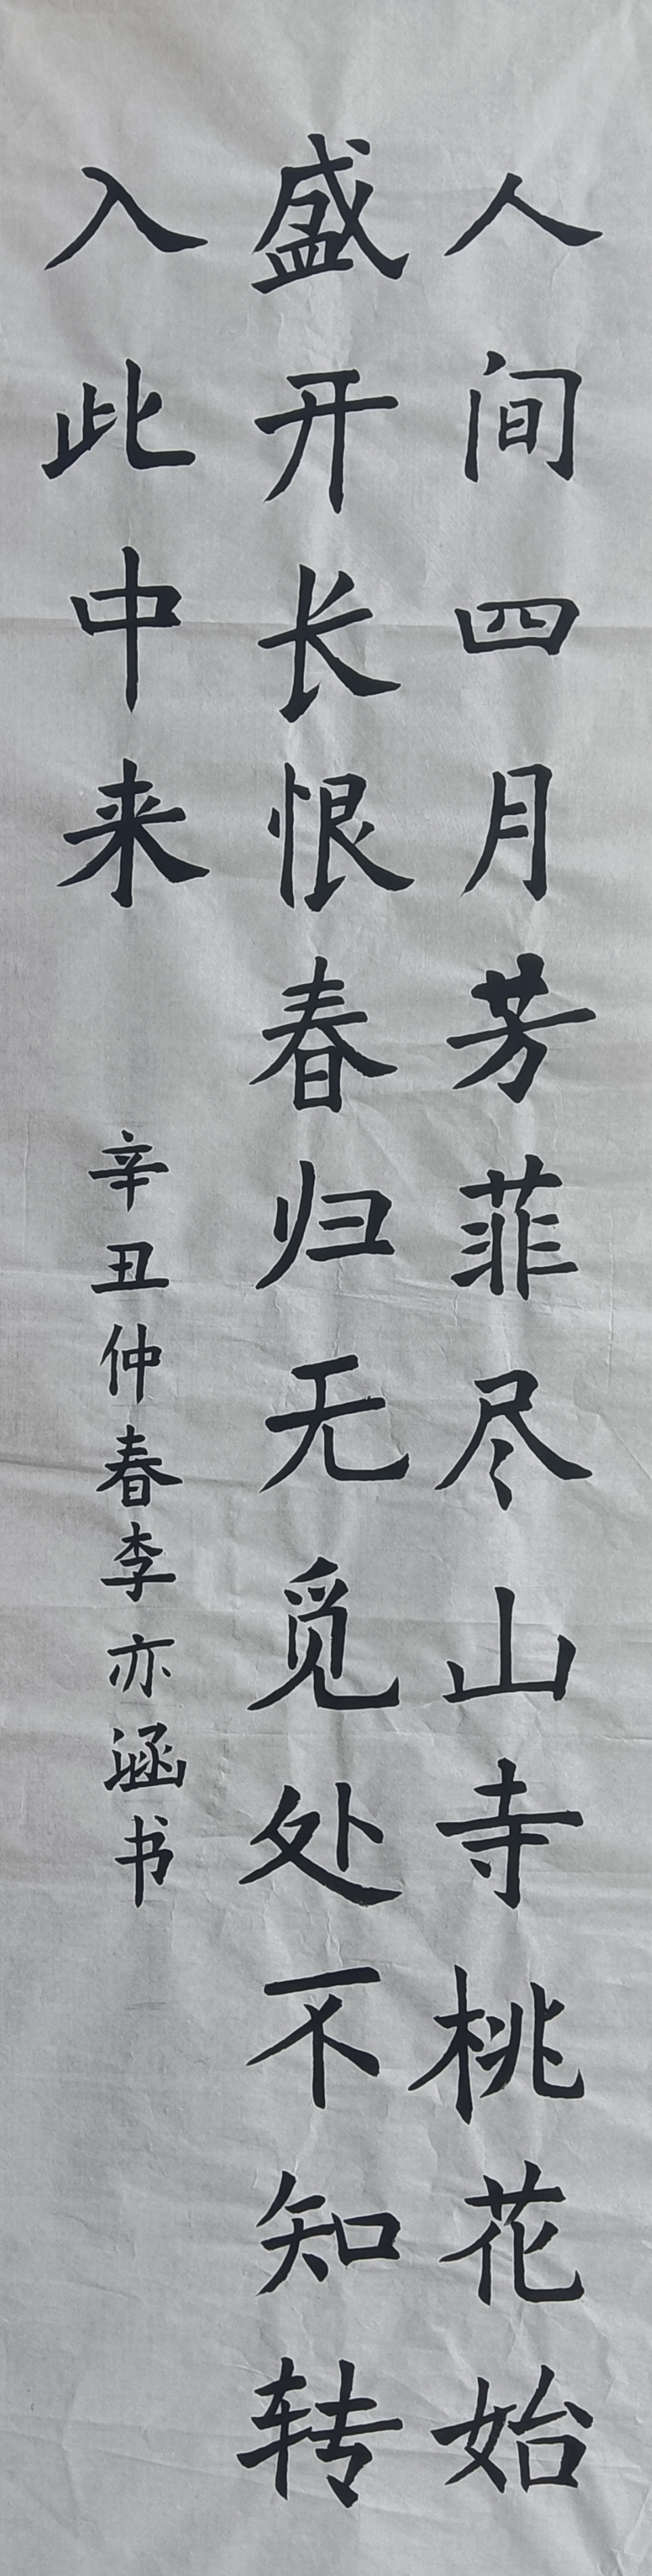 人间四月芳菲尽山寺桃花始
盛开长恨春归无觅处不知转
入此中来
辛丑仲春李亦涵书